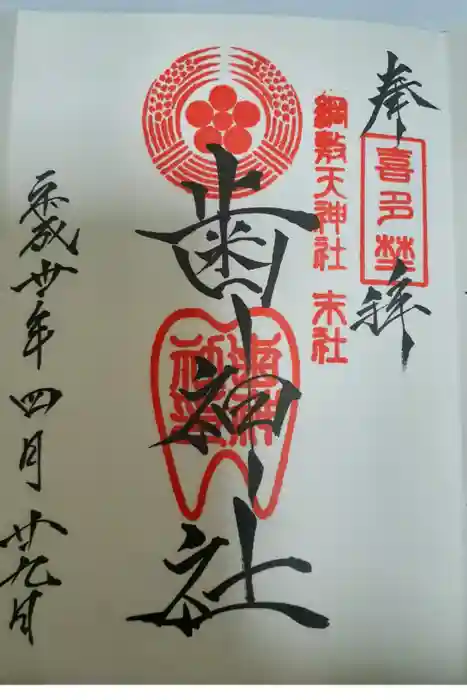 奉拝
喜多埜
綱敷天神社 末社
歯神社
歯神社
平成卅年四月廿九日